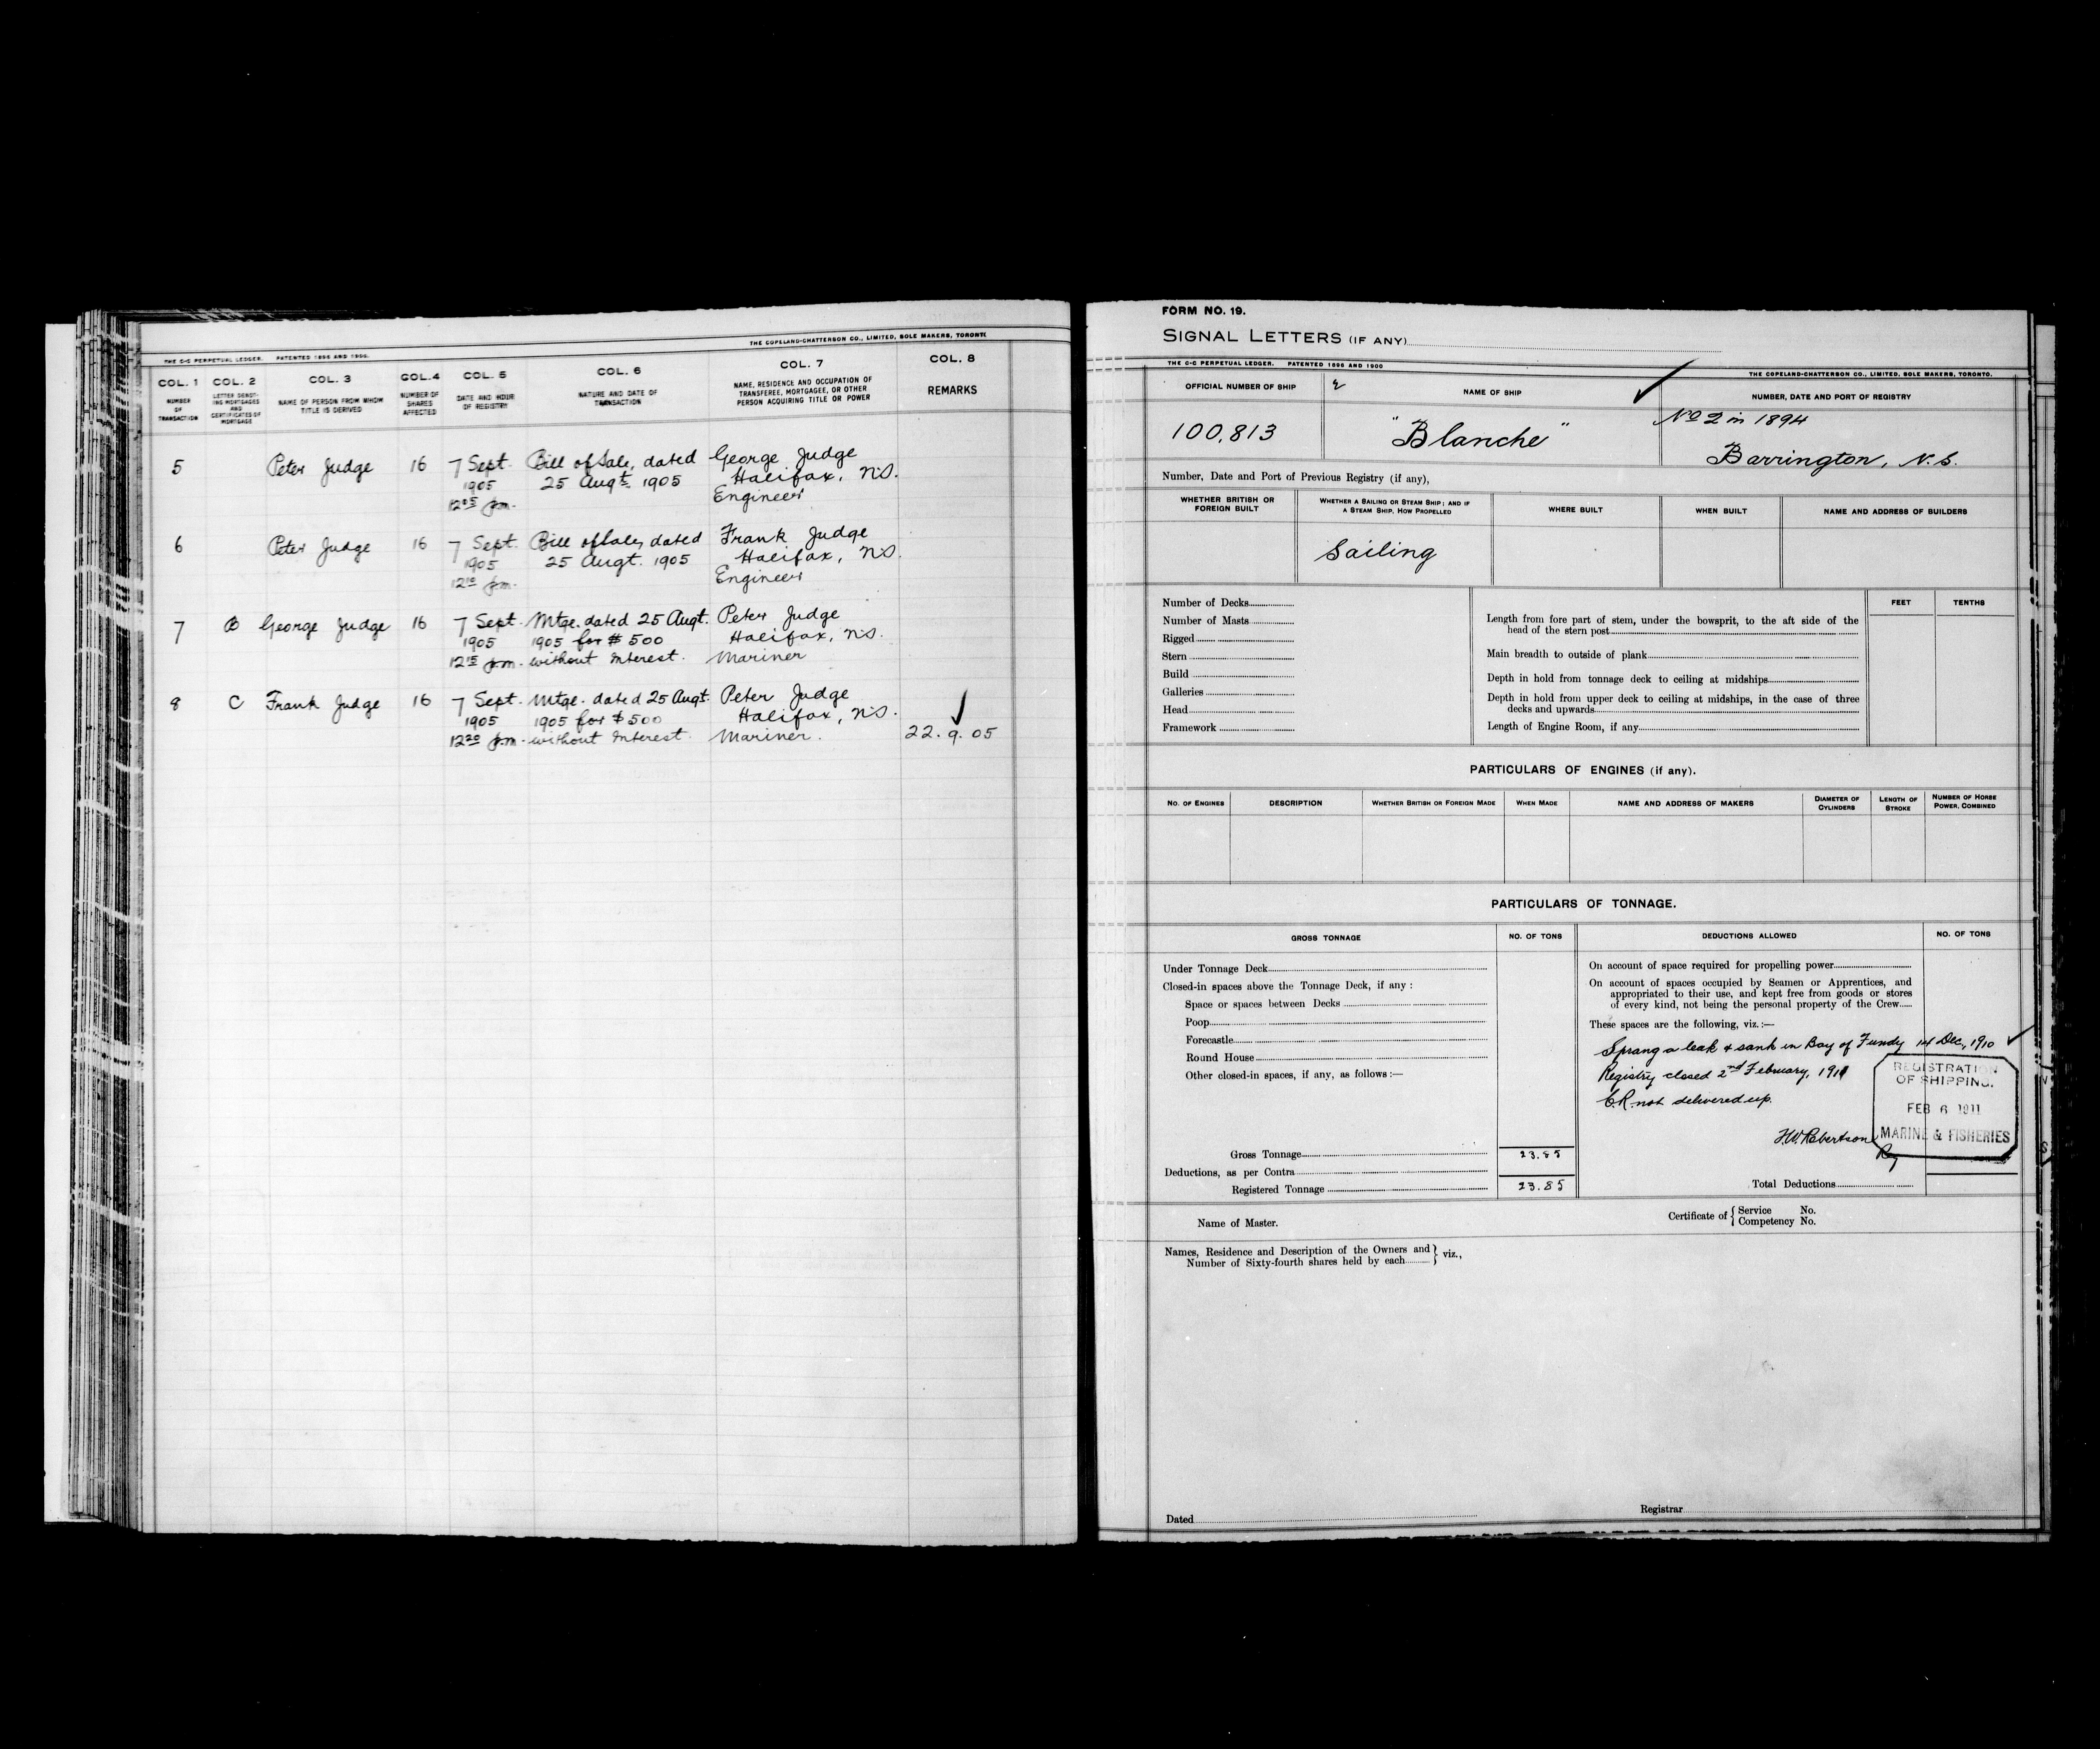 THE C-C PERPETUAL LEDGER. PATENTED 1896 AND 1900.
THE COPELAND-CHATTERSON CO., LIMITED, SOLE MAKERS, TORONTO
COL. 1 COL. 2 COL. 3 COL. 4 COL. 5 COL. 6 COL. 7 COL. 8
NUMBER OF TRANSACTION
LETTER DENOTING MORTGAGES AND CERTIFICATES OF MORTGAGE
NAME OF PERSON FROM WHOM TITLE IS DERIVED
NUMBER OF SHARES AFFECTED
DATE AND HOUR OF REGISTRY
NATURE AND DATE OF TRANSACTION
NAME, RESIDENCE AND OCCUPATION OF TRANSFEREE, MORTGAGEE, OR OTHER PERSON ACQUIRING TITLE OR POWER
REMARKS
5 Peter Judge 16 7 Sept. Bill of Sale, dated George Judge
1905 25 Augt. 1905 Halifax, N.S.
12 05 p.m. Engineer
6 Peter Judge 16 7 Sept. Bill of Sale, dated Frank Judge
1905 25 Augt. 1905 Halifax, N.S.
12 10 p.m. Engineer
7 B George Judge 16 7 Sept. Mtge. dated 25 Augt. Peter Judge
1905 1905 for $500 Halifax, N.S.
12 15 p.m. without Interest. Mariner
8 C Frank Judge 16 7 Sept. Mtge. dated 25 Augt. Peter Judge
1905 1905 for $500 Halifax, N.S.
12 20 p.m. without Interest. Mariner. 22.9.05
FORM NO. 19.
SIGNAL LETTERS (IF ANY)
THE C-C PERPETUAL LEDGER. PATENTED 1896 AND 1900
THE COPELAND-CHATTERSON CO., LIMITED, SOLE MAKERS, TORONTO.
OFFICIAL NUMBER OF SHIP NAME OF SHIP NUMBER, DATE AND PORT OF REGISTRY
100,813 "Blanche" No 2 in 1894
Barrington, N.S.
Number, Date and Port of Previous Registry (if any),
WHETHER BRITISH OR FOREIGN BUILT
WHETHER A SAILING OR STEAM SHIP; AND IF A STEAM SHIP, HOW PROPELLED
WHERE BUILT WHEN BUILT NAME AND ADDRESS OF BUILDERS
Sailing
Number of Decks
Number of Masts
Rigged
Stern
Build
Galleries
Head
Framework
FEET TENTHS
Length from fore part of stem, under the bowsprit, to the aft side of the
head of the stern post
Main breadth to outside of plank
Depth in hold from tonnage deck to ceiling at midships
Depth in hold from upper deck to ceiling at midships, in the case of three
decks and upwards
Length of Engine Room, if any
PARTICULARS OF ENGINES (if any).
NO. OF ENGINES DESCRIPTION WHETHER BRITISH OR FOREIGN MADE WHEN MADE NAME AND ADDRESS OF MAKERS DIAMETER OF CYLINDERS LENGTH OF STROKE NUMBER OF HORSE POWER, COMBINED
PARTICULARS OF TONNAGE.
GROSS TONNAGE NO. OF TONS DEDUCTIONS ALLOWED NO. OF TONS
Under Tonnage Deck
Closed-in spaces above the Tonnage Deck, if any :
Space or spaces between Decks
Poop
Forecastle
Round House
Other closed-in spaces, if any, as follows :—
Gross Tonnage 23.85
Deductions, as per Contra
Registered Tonnage 23.85
On account of space required for propelling power
On account of spaces occupied by Seamen or Apprentices, and
appropriated to their use, and kept free from goods or stores
of every kind, not being the personal property of the Crew
These spaces are the following, viz.:—
Sprang a leak & sank in Bay of Fundy 14 Dec, 1910
Registry closed 2nd February, 1911
C.R. not delivered up.
H.W. Robertson
Rg
REGISTRATION
OF SHIPPING.
FEB 6 1911
MARINE & FISHERIES
Total Deductions
Name of Master.
Certificate of { Service No.
Competency No.
Names, Residence and Description of the Owners and } viz.,
Number of Sixty-fourth shares held by each
Dated
Registrar